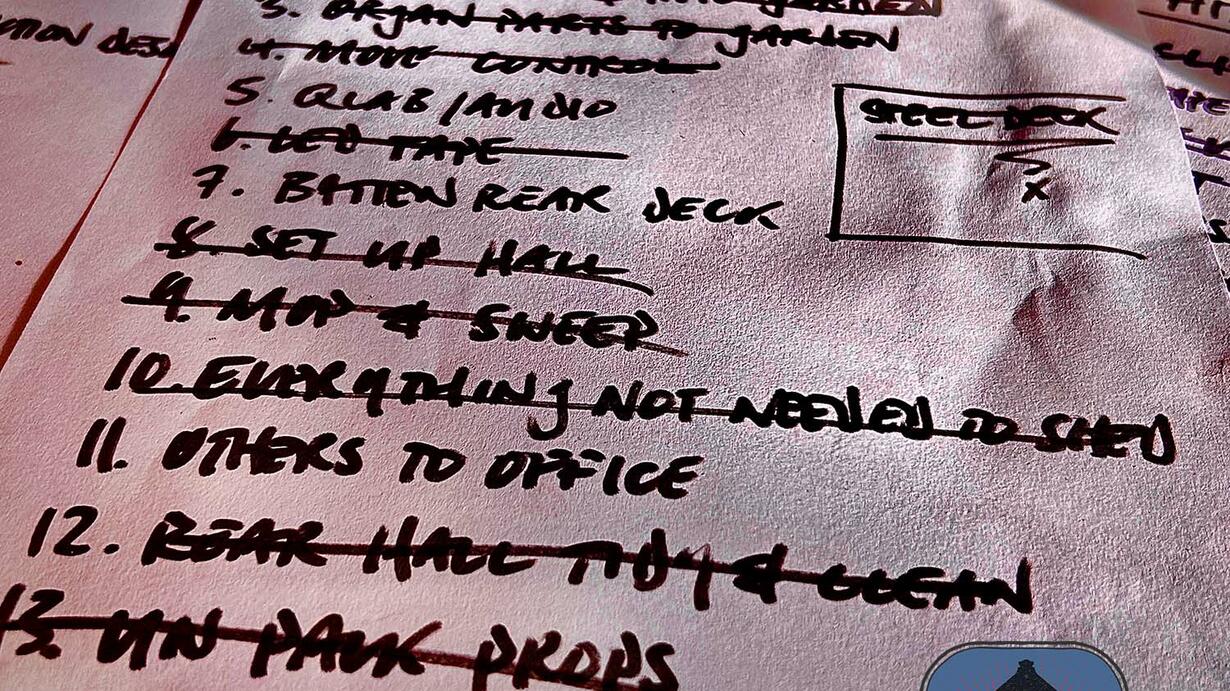 GARDEN
3. ORGAN PARTS TO GARDEN
4. MOVE CONTROL
5. QLAB/AUDIO
6. LED TAPE
7. BATTEN REAR DECK
8. SET UP HALL
9. MOP & SWEEP
10. EVERYTHING NOT NEEDED TO SHED
11. OTHERS TO OFFICE
12. REAR HALL TIDY & CLEAN
13. UN PACK PROPS
STEEL DECK
5
X